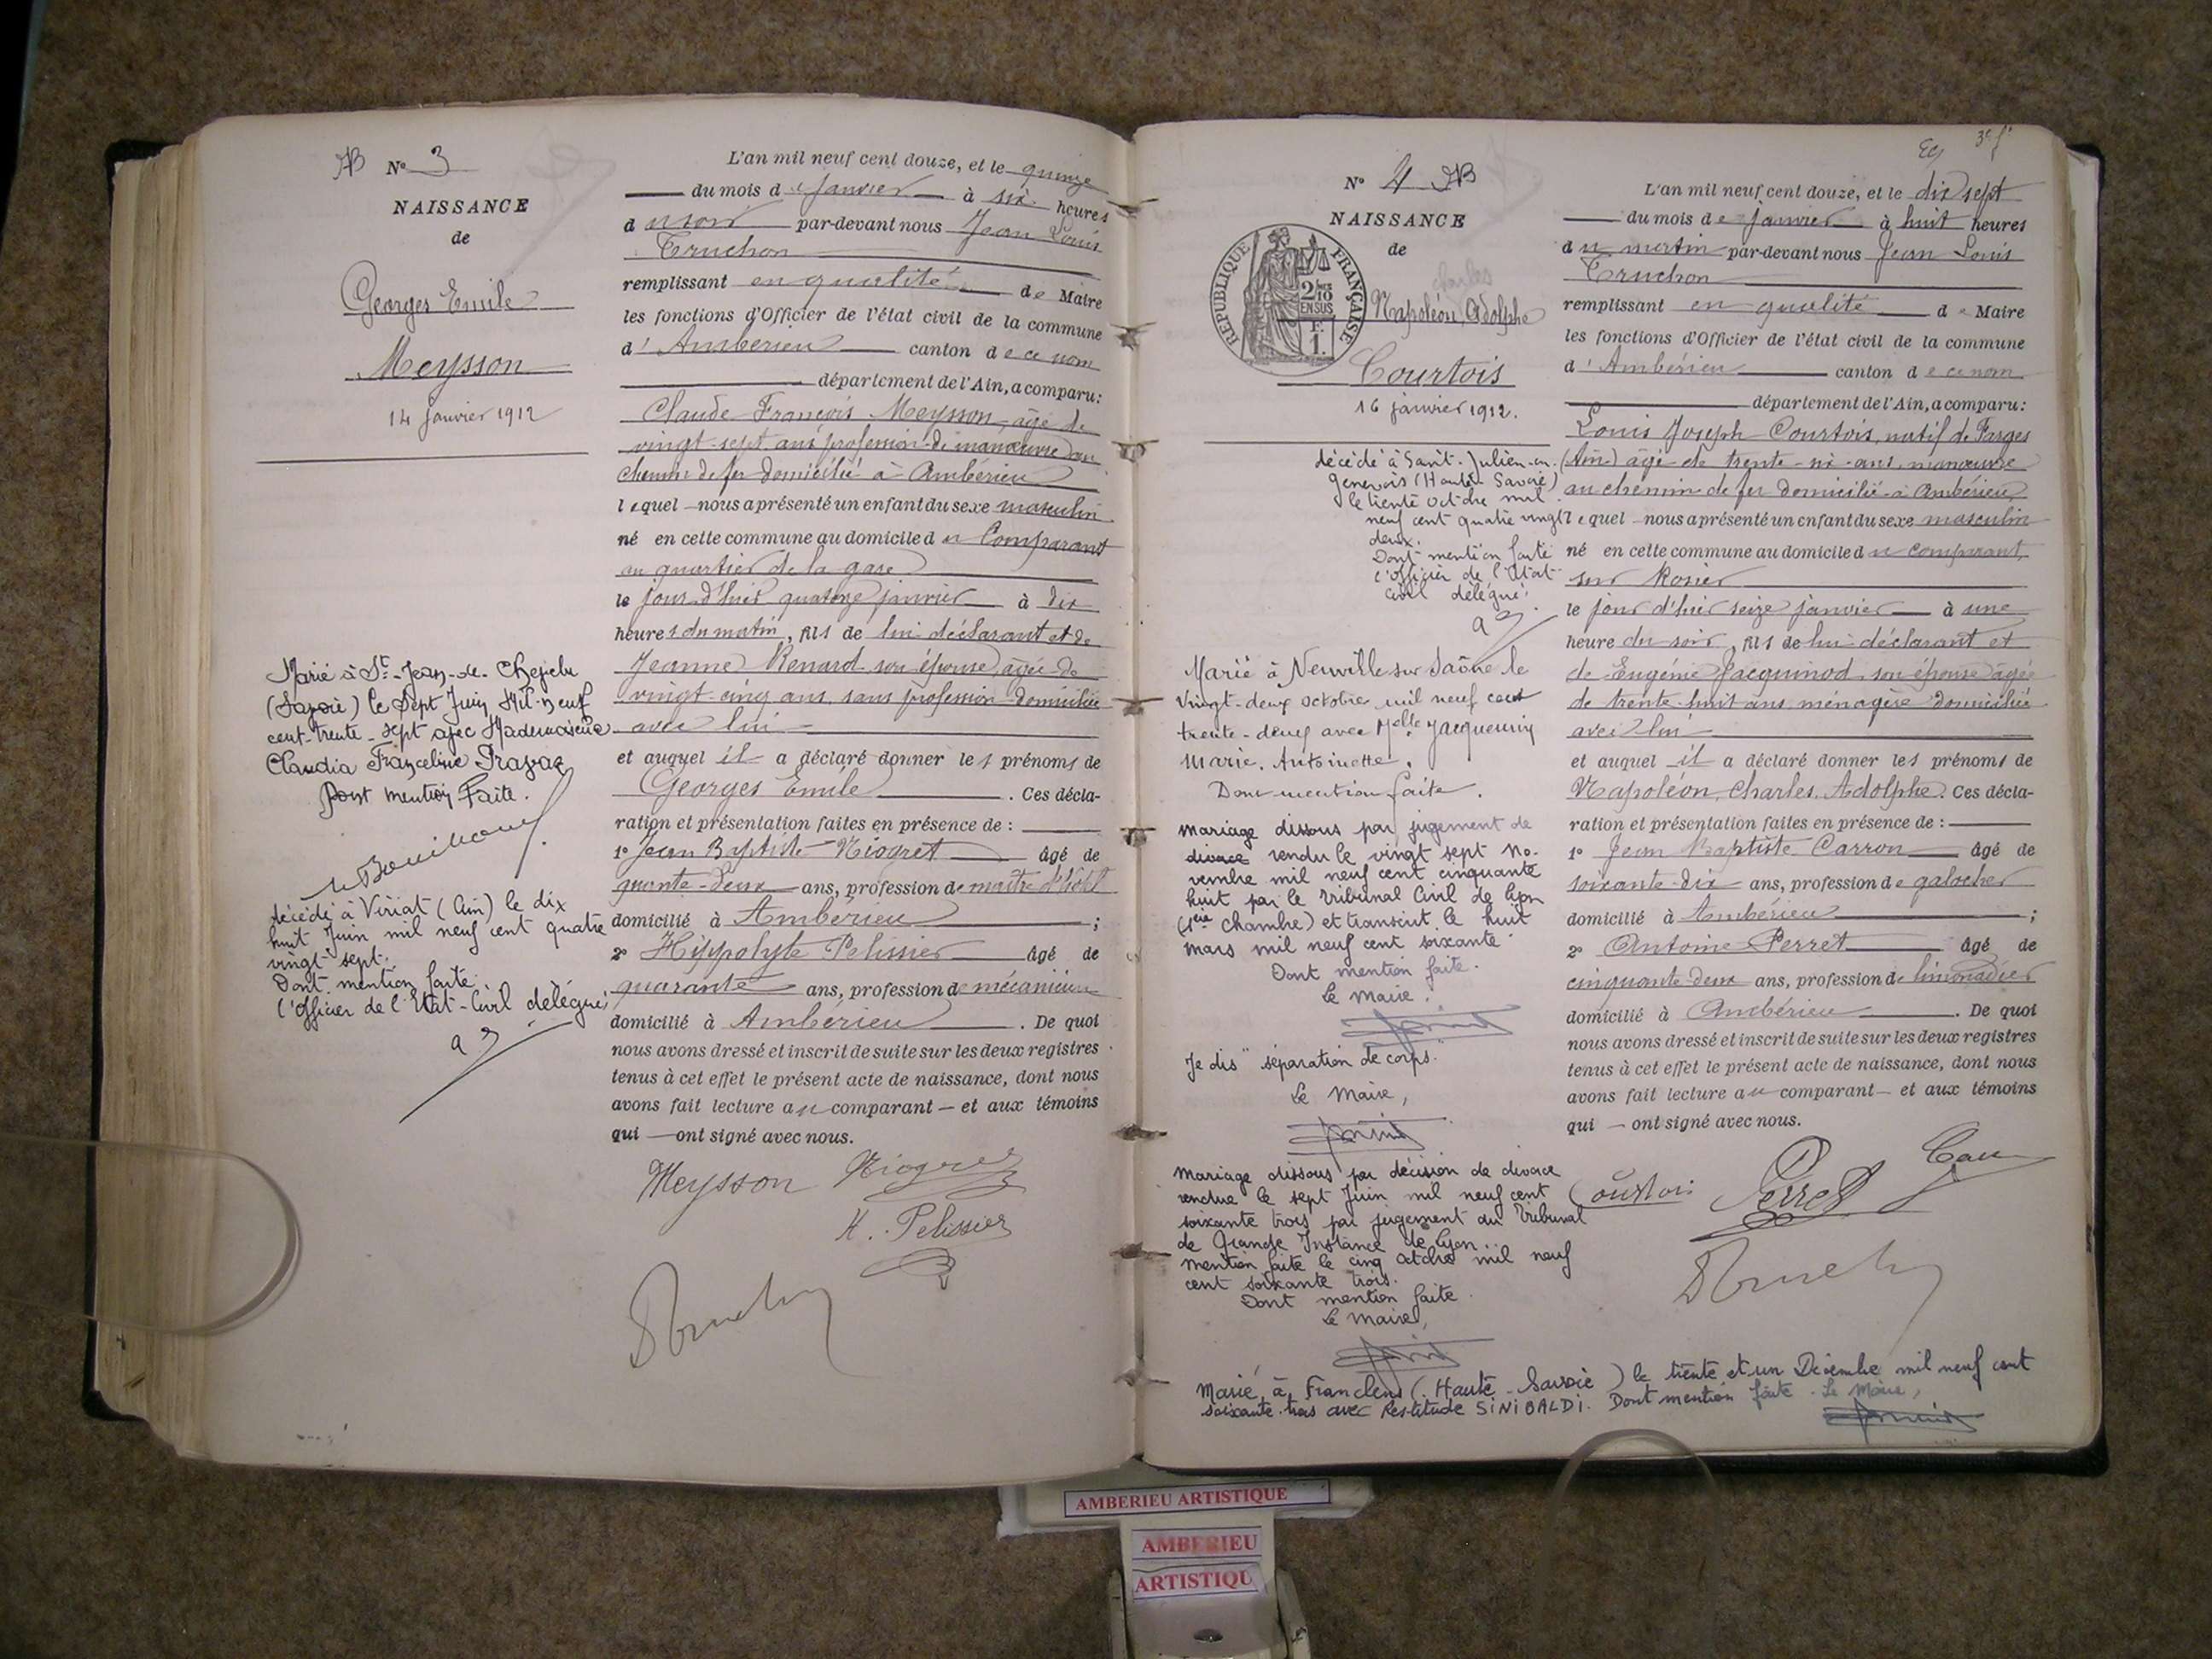 AB N° 3
NAISSANCE
de
Georges Emile
Meysson
14 janvier 1912
Marié à St-Jean-de-Chevelu
(Savoie) le Sept Juin Mil-neuf
cent-trente-sept avec Mademoiselle
Claudia Franceline
Dont mention Faite.
décédé à Viriat (Ain) le dix
huit Juin mil neuf cent quatre
vingt sept.
Dont mention faite
l'officier de l'Etat-Civil délégué,
L'an mil neuf cent douze, et le quinze
du mois de janvier à six heures
du soir par-devant nous Jean Louis
Truchon
remplissant en qualité de Maire
les fonctions d'Officier de l'état civil de la commune
d'Ambérieu canton de ce nom
département de l'Ain, a comparu:
Claude François Meysson, âgé de
vingt-sept ans profession de manœuvre au
chemin de fer domicilié à Ambérieu
lequel nous a présenté un enfant du sexe masculin
né en cette commune au domicile du Comparant
au quartier de la gare
le jour d'hier quatorze janvier à dix
heures du matin, fils de lui déclarant et de
Jeanne Renard son épouse, âgée de
vingt-cinq ans, sans profession domiciliée
avec lui
et auquel il a déclaré donner les prénoms de
Georges Emile. Ces décla-
ration et présentation faites en présence de :
1° Jean Baptiste Niogret âgé de
quante-deux ans, profession de maître d'hôtel
domicilié à Ambérieu ;
2° Hippolyte Pelissier âgé de
quarante ans, profession de mécanicien
domicilié à Ambérieu. De quoi
nous avons dressé et inscrit de suite sur les deux registres
tenus à cet effet le présent acte de naissance, dont nous
avons fait lecture au comparant – et aux témoins
qui — ont signé avec nous.
Meysson Niogret
H. Pelissier
Truchon
N° 4 AB
NAISSANCE
de
REPUBLIQUE FRANÇAISE
2/10 EN SUS
1 F.
Charles
Napoléon, Adolphe
Courtois
16 janvier 1912.
décédé à Saint-Julien-en-
Genevois (Haute Savoie)
le trente octobre mil
neuf cent quatre vingt
deux.
Dont mention faite
l'officier de l'Etat
civil délégué.
Marié à Neuville sur Saône le
vingt-deux octobre mil neuf cent
trente-deux avec Melle Jacquemin
Marie, Antoinette.
Dont mention faite.
mariage dissous par jugement de
divorce rendu le vingt sept no-
vembre mil neuf cent cinquante
huit par le tribunal Civil de Lyon
(1ère Chambre) et transcrit le huit
mars mil neuf cent soixante
Dont mention faite.
Le Maire,
Je dis "séparation de corps."
Le Maire,
mariage dissous par décision de divorce
rendue le sept Juin mil neuf cent
soixante trois par jugement du Tribunal
de Grande Instance de Lyon.
mention faite le cinq octobre mil neuf
cent soixante trois.
Dont mention faite.
Le Maire,
L'an mil neuf cent douze, et le dix sept
du mois de janvier à huit heures
du matin par-devant nous Jean Louis
Truchon
remplissant en qualité de Maire
les fonctions d'Officier de l'état civil de la commune
d'Ambérieu canton de ce nom
département de l'Ain, a comparu:
Louis Joseph Courtois, natif de Farges
(Ain) âgé de trente-six ans, manœuvre
au chemin de fer domicilié à Ambérieu,
lequel nous a présenté un enfant du sexe masculin
né en cette commune au domicile du comparant,
sur Rosier
le jour d'hier seize janvier à une
heure du soir, fils de lui déclarant et
de Eugénie Jacquinod, son épouse âgée
de trente-huit ans ménagère domiciliée
avec lui
et auquel il a déclaré donner les prénoms de
Napoléon, Charles, Adolphe. Ces décla-
ration et présentation faites en présence de :
1° Jean Baptiste Carron âgé de
soixante-dix ans, profession de galocher
domicilié à Ambérieu ;
2° Antoine Perret âgé de
cinquante-deux ans, profession de limonadier
domicilié à Ambérieu. De quoi
nous avons dressé et inscrit de suite sur les deux registres
tenus à cet effet le présent acte de naissance, dont nous
avons fait lecture au comparant – et aux témoins
qui – ont signé avec nous.
Courtois Perret
Truchon
Marié à Franclens (Haute-Savoie) le trente et un Décembre mil neuf cent
soixante trois avec Restitude SINIBALDI. Dont mention faite. Le Maire,
AMBERIEU ARTISTIQUE
AMBERIEU
ARTISTIQU